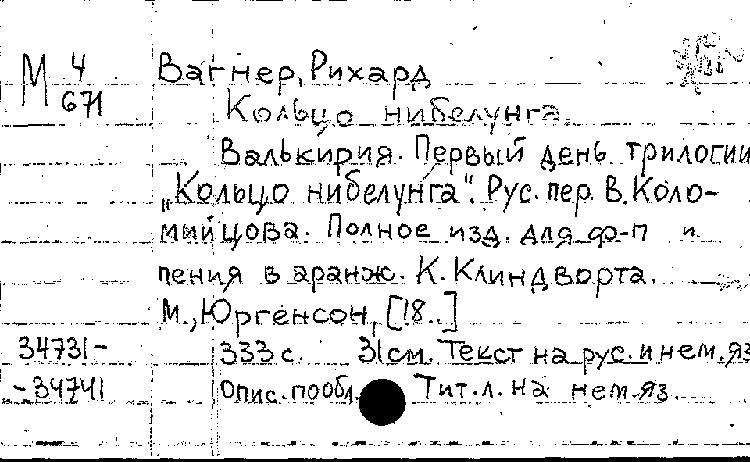 М 4 Вагнер, Рихард
671 Кольцо нибелунга.
Валькирия. Первый день трилогии
„Кольцо нибелунга". Рус. пер. В. Коло-
мийцова. Полное изд. для ф-п и
пения в аранж. К. Клиндворта.
М., Юргенсон, [18..]
34731- 333 с. 31 см. Текст на рус. и нем. яз
-34741 Опис. по обл. Тит. л. на нем. яз.